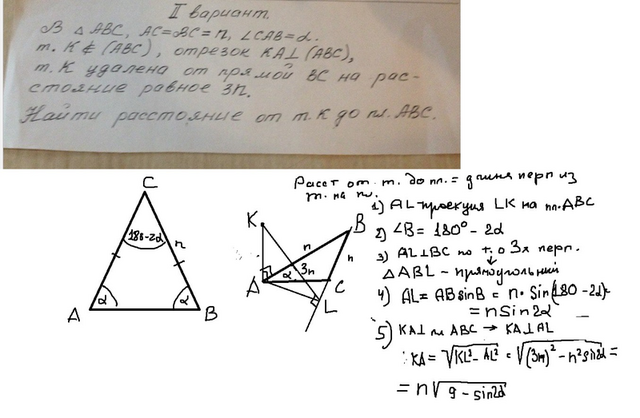 II вариант.
В △ ABC, AC=BC=n, ∠CAB=α.
т. К ∉ (ABC), отрезок KA⊥(ABC),
т. К удалена от прямой ВС на рас-
стояние равное 3n.
Найти расстояние от т. К до пл. ABC.
C
180-2α
n
α
α
A
B
K
B
n
3n
α
n
A
C
L
Расст от т. до пл. = длина перп из
т. на пл.
1) AL проекция LK на пл. ABC
2) ∠B= 180°- 2α
3) AL⊥BC по т. о 3х перп.
△ABL - прямоугольний
4) AL= AB sinB = n· Sin(180-2α)=
= n Sin2α
5) KA⊥пл ABC → KA⊥AL
KA= √KL²-AL² = √(3n)²-n²sin2α =
= n√9-sin2α